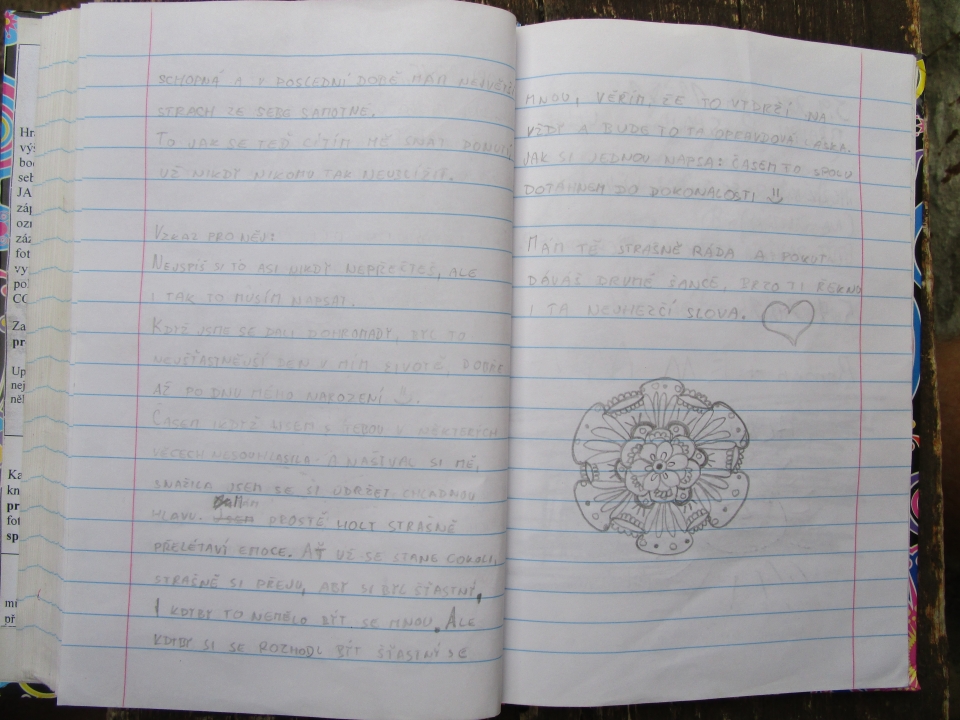 Hra
výs
boc
seb
JA
záp
ozn
záz
fot
vyp
pol
CC
Za
pr
Up
nej
něl
Ka
kn
pr
fot
sp
mi
př
SCHOPNÁ A V POSLEDNÍ DOBĚ MÁM NEJVĚTŠÍ
STRACH ZE SEBE SAMOTNÉ.
TO JAK SE TEĎ CÍTÍM MĚ SNAD DONUTÍ
UŽ NIKDY NIKOMU TAK NEUBLÍŽIT.
VZKAZ PRO NĚJ:
NEJSPÍŠ SI TO ASI NIKDY NEPŘEČTEŠ, ALE
I TAK TO MUSÍM NAPSAT.
KDYŽ JSME SE DALI DOHROMADY, BYL TO
NEJŠŤASTNĚJŠÍ DEN V MÍM ŽIVOTĚ, DOBŘE
AŽ PO DNU MÉHO NAROZENÍ :).
ČASEM I KDYŽ JSEM S TEBOU V NĚKTERÝCH
VĚCECH NESOUHLASILA. A NAŠTVAL SI MĚ,
SNAŽILA JSEM SE SI UDRŽET CHLADNOU
HLAVU. PROSTĚ HOLT STRAŠNĚ
PŘELÉTAVÍ EMOCE. AŤ UŽ SE STANE COKOLI,
STRAŠNĚ SI PŘEJU, ABY SI BYL ŠŤASTNÝ,
I KDYBY TO NEMĚLO BÝT SE MNOU. ALE
KDYBY SI SE ROZHODL BÝT ŠŤASTNÝ SE
MNOU, VĚŘÍM, ŽE TO VYDRŽÍ NA
VŽDY A BUDE TO TA OPRAVDOVÁ LÁSKA.
JAK SI JEDNOU NAPSAL: ČASEM TO SPOLU
DOTÁHNEM DO DOKONALOSTI :)
MÁM TĚ STRAŠNĚ RÁDA A POKUD
DÁVÁŠ DRUHÉ ŠANCE, BRZO TI ŘEKNU
I TA NEJHEZČÍ SLOVA.